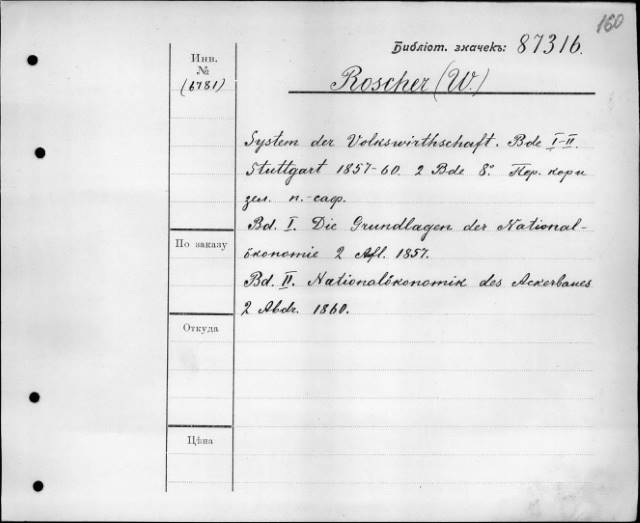 160
Библіот. значекъ: 87316.
Инв.
№
(6781)
Roscher (W.)
System der Volkswirthschaft. Bde I-II.
Stuttgart 1857-60. 2 Bde 8°. Кор. кори
зел. п.-саф.
Bd. I. Die Grundlagen der National-
ökonomie 2 Afl. 1857.
По заказу
Bd. II. Nationalökonomik des Ackerbaues
2 Abdr. 1860.
Откуда
Цѣна